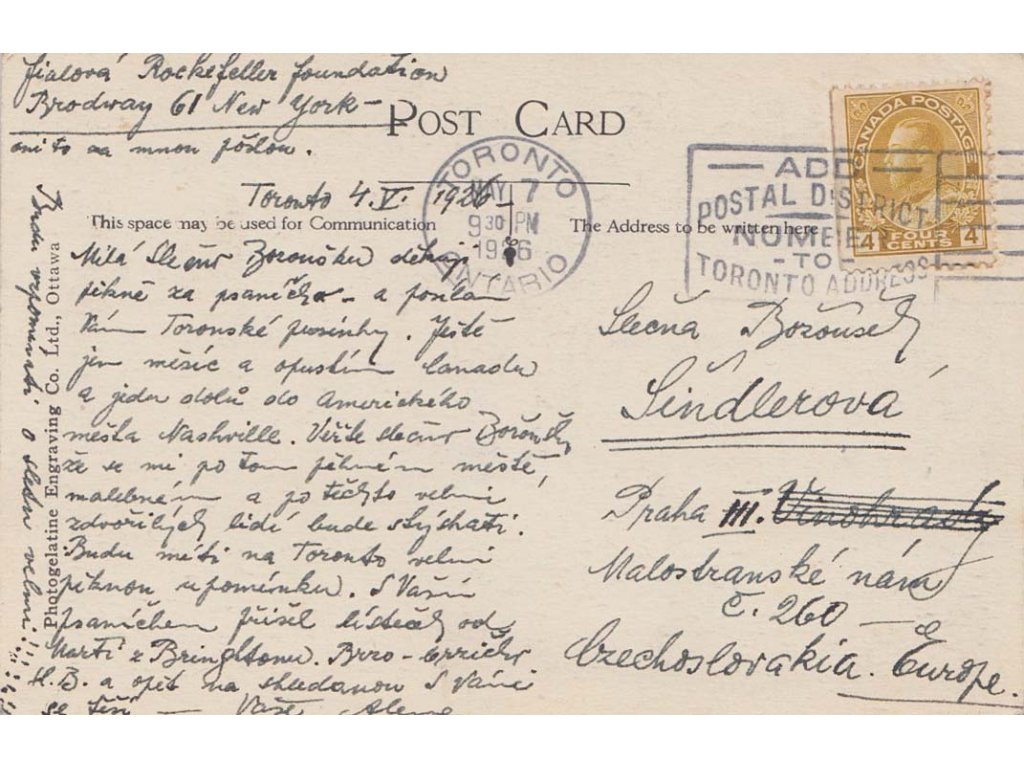 Fialová Rockefeller foundation
Brodway 61 New York –
oni to za mnou pošlou.
POST CARD
CANADA POSTAGE
4 FOUR CENTS 4
TORONTO
MAY 7
9 30 PM
1926
ONTARIO
ADD
POSTAL DISTRICT
NUMBER
- TO -
TORONTO ADDRESS
Toronto 4.V. 1926 –
This space may be used for Communication
The Address to be written here
Milá slečno děkuji
pěkně za psaníčko – a posílám
Vám Toronské . Ještě
jen měsíc a opustím Canadu
a jedu dolů do Amerického
města Nashville. Věřte slečno
že se mi po tom pěkném městě,
malebném a po těchto velmi
zdvořilých lidí bude stýskati.
Budu míti na Toronto velmi
pěknou upomínku. S Vaším
psaníčkem přišel lísteček od
Marti z . 
H.B. a opět na shledanou s Vámi
se těší — Vaše
Budu vzpomínati o velmi!!
Photogelatine Engraving Co. Ltd., Ottawa
Slečna
Šindlerová
Praha III. Vinohrady
Malostranské nám
č. 260 —
Czechoslovakia. Europe.